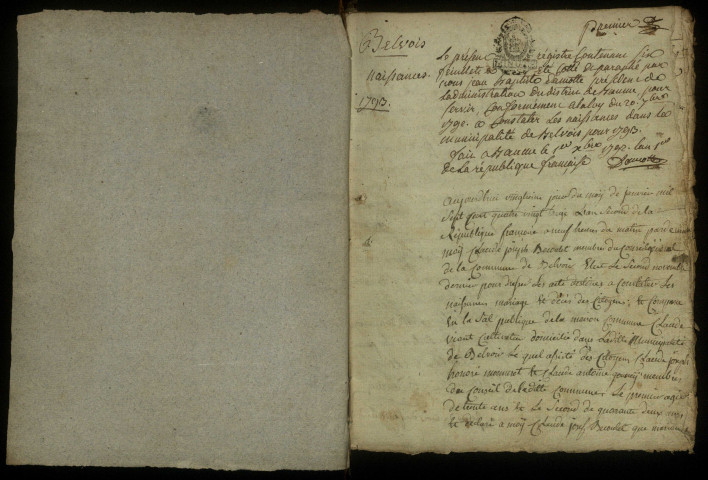 Belvois
naissances.
1793.
premier
Le présent registre Contenant six
feuillets a été Cotté et paraphé par
nous jean Baptiste Damotte président de
Ladministration du district de Baume, pour
servir Conformement a la loy du 20. 7bre
1792. a Constater Les naissances dans la
municipalité de Belvois pour 1793.
Fait a Baume le 1er Xbre 1792. lan 1er
de La république française Damotte
aujourdhui vingtieme jour du moy de janvier mil
Sept Cent quatre vingt treize Lean Second de la
République francoise a neuf heures du matin pardevant
moÿ Claude joseph Beurlet membre du Conseil général
de la Commune de Belvoir Elut Le Second novembre
dernier pour dresser Les acte destinés a Constater Les
naissances mariage et décés des Citoyens, Est Comparu
En la Sal publique de la maison Commune Claude
viant Cultivateur domicilié dans Ledite Municipalité
de Belvoir Le quel assisté des Citoyens Claude joseph
honoré monnret et Claude antoine membres
du Conseil de la ditte Commune, Le premier agé
de trente ans et Le Second de quarante deux ans,
et declaré a moÿ Claude josph Beurlet que